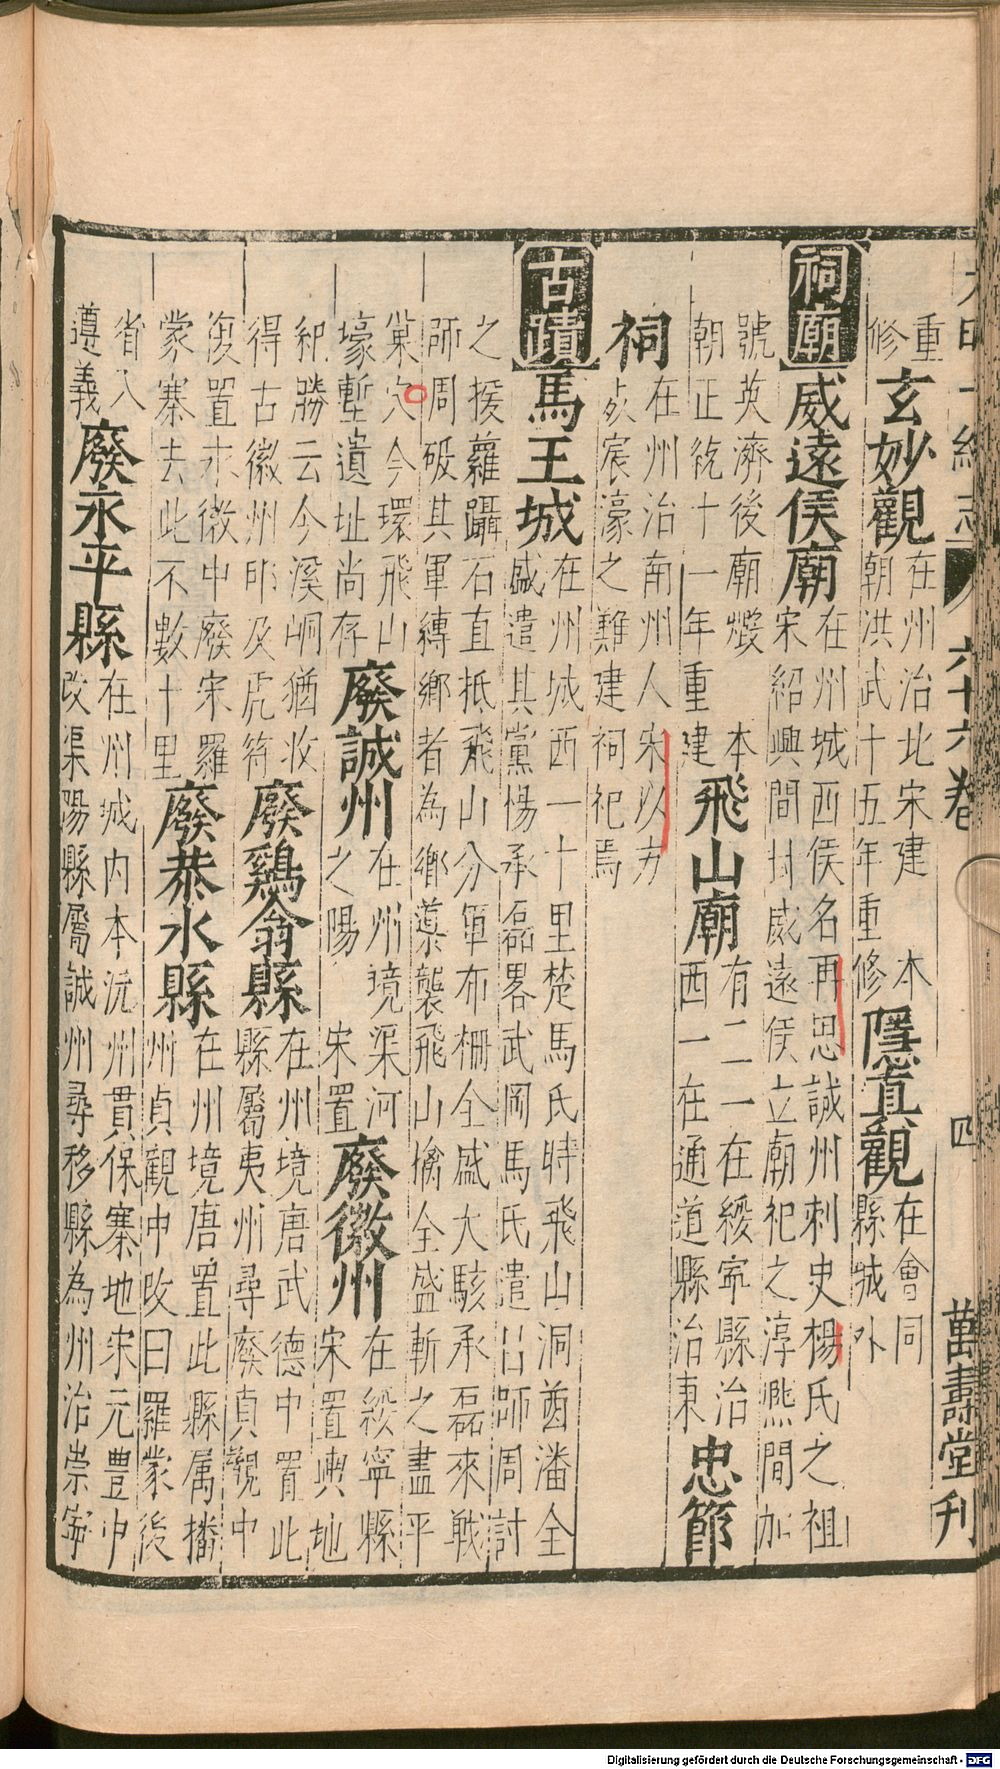 大明一統志 六十六卷 四 萬壽堂刊
重
修
玄妙觀
在州治北宋建 本
朝洪武十五年重修
隱真觀
在會同
縣城外
祠廟
威遠侯廟
在州城西侯名再思誠州刺史楊氏之祖
宋紹興間封威遠侯立廟祀之淳熈間加
號英濟後廟燬 本
朝正統十一年重建
飛山廟
有二一在綏寧縣治
西一在通道縣治東
忠節
祠
在州治南州人宋以方
歿宸濠之難建祠祀焉
古蹟
馬王城
在州城西一十里楚馬氏時飛山洞酋潘全
盛遣其黨楊承磊畧武岡馬氏遣呂師周討
之援蘿躡石直抵飛山分軍布柵全盛大駭承磊來戰
師周破其軍縛鄉者為鄉導襲飛山擒全盛斬之盡平
巢穴今環飛山
壕塹遺址尚存
廢誠州
在州境渠河
之陽 宋置
廢徽州
在綏寧縣
宋置輿地
紀勝云今溪峒猶收
得古徽州印及虎符
廢鷄翁縣
在州境唐武德中置此
縣屬夷州尋廢貞觀中
復置永徽中廢宋羅
蒙寨去此不數十里
廢恭水縣
在州境唐置此縣属播
州貞觀中改曰羅蒙後
省入
遵義
廢永平縣
在州城內本沅州貫保寨地宋元豐中
改渠陽縣屬誠州尋移縣為州治崇寧
Digitalisierung gefördert durch die Deutsche Forschungsgemeinschaft - DFG